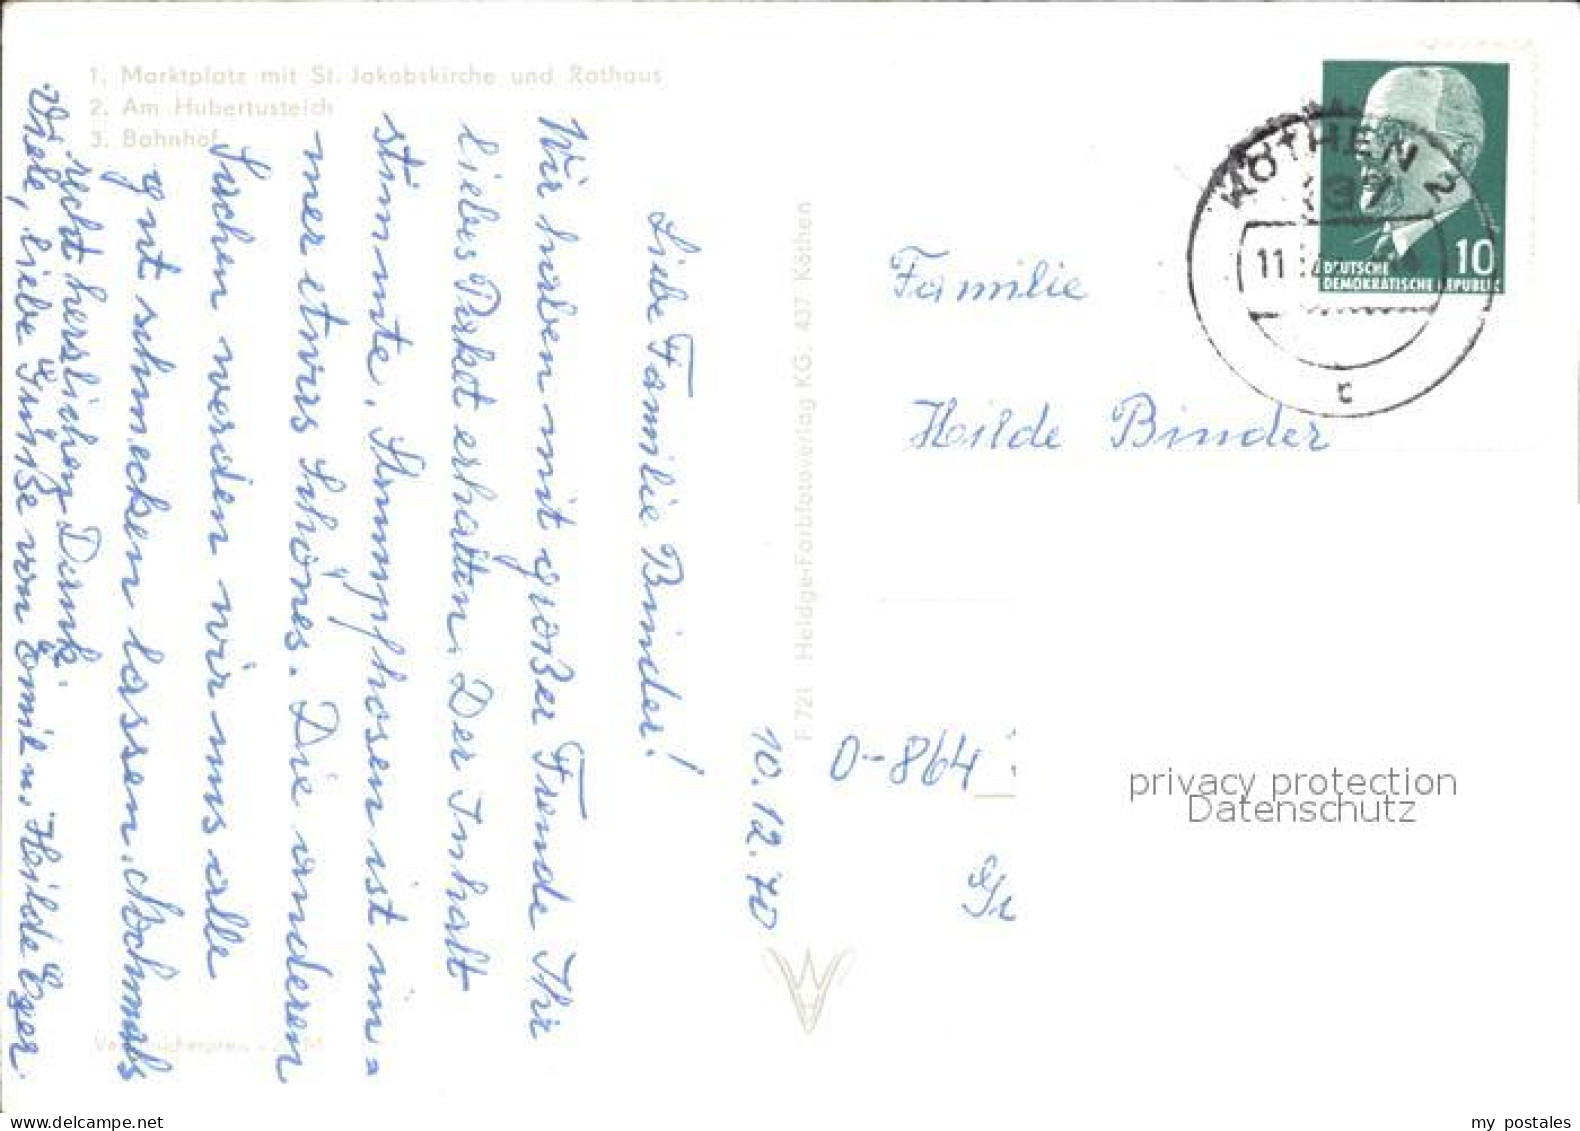 1. Marktplatz mit St. Jakobskirche und Rathaus
2. Am Hubertusteich
3. Bahnhof
10.12.70
Liebe Familie Binder!
Wir haben mit großer Freude Ihr
liebes Paket erhalten. Der Inhalt
stimmte. Strumpfhosen ist im=
mer etwas Schönes. Die anderen
Sachen werden wir uns alle
gut schmecken lassen. Nochmals
recht herzlichen Dank.
Viele, liebe Grüße von Emil u. Heilde
F 721 Heldge-Farbfotoverlag KG, 437 Köthen
KÖTHEN 2
437
11
r
10
DEUTSCHE
DEMOKRATISCHE REPUBLIK
Familie
Hilde Binder
O-864
privacy protection
Datenschutz
my postales
www.delcampe.net